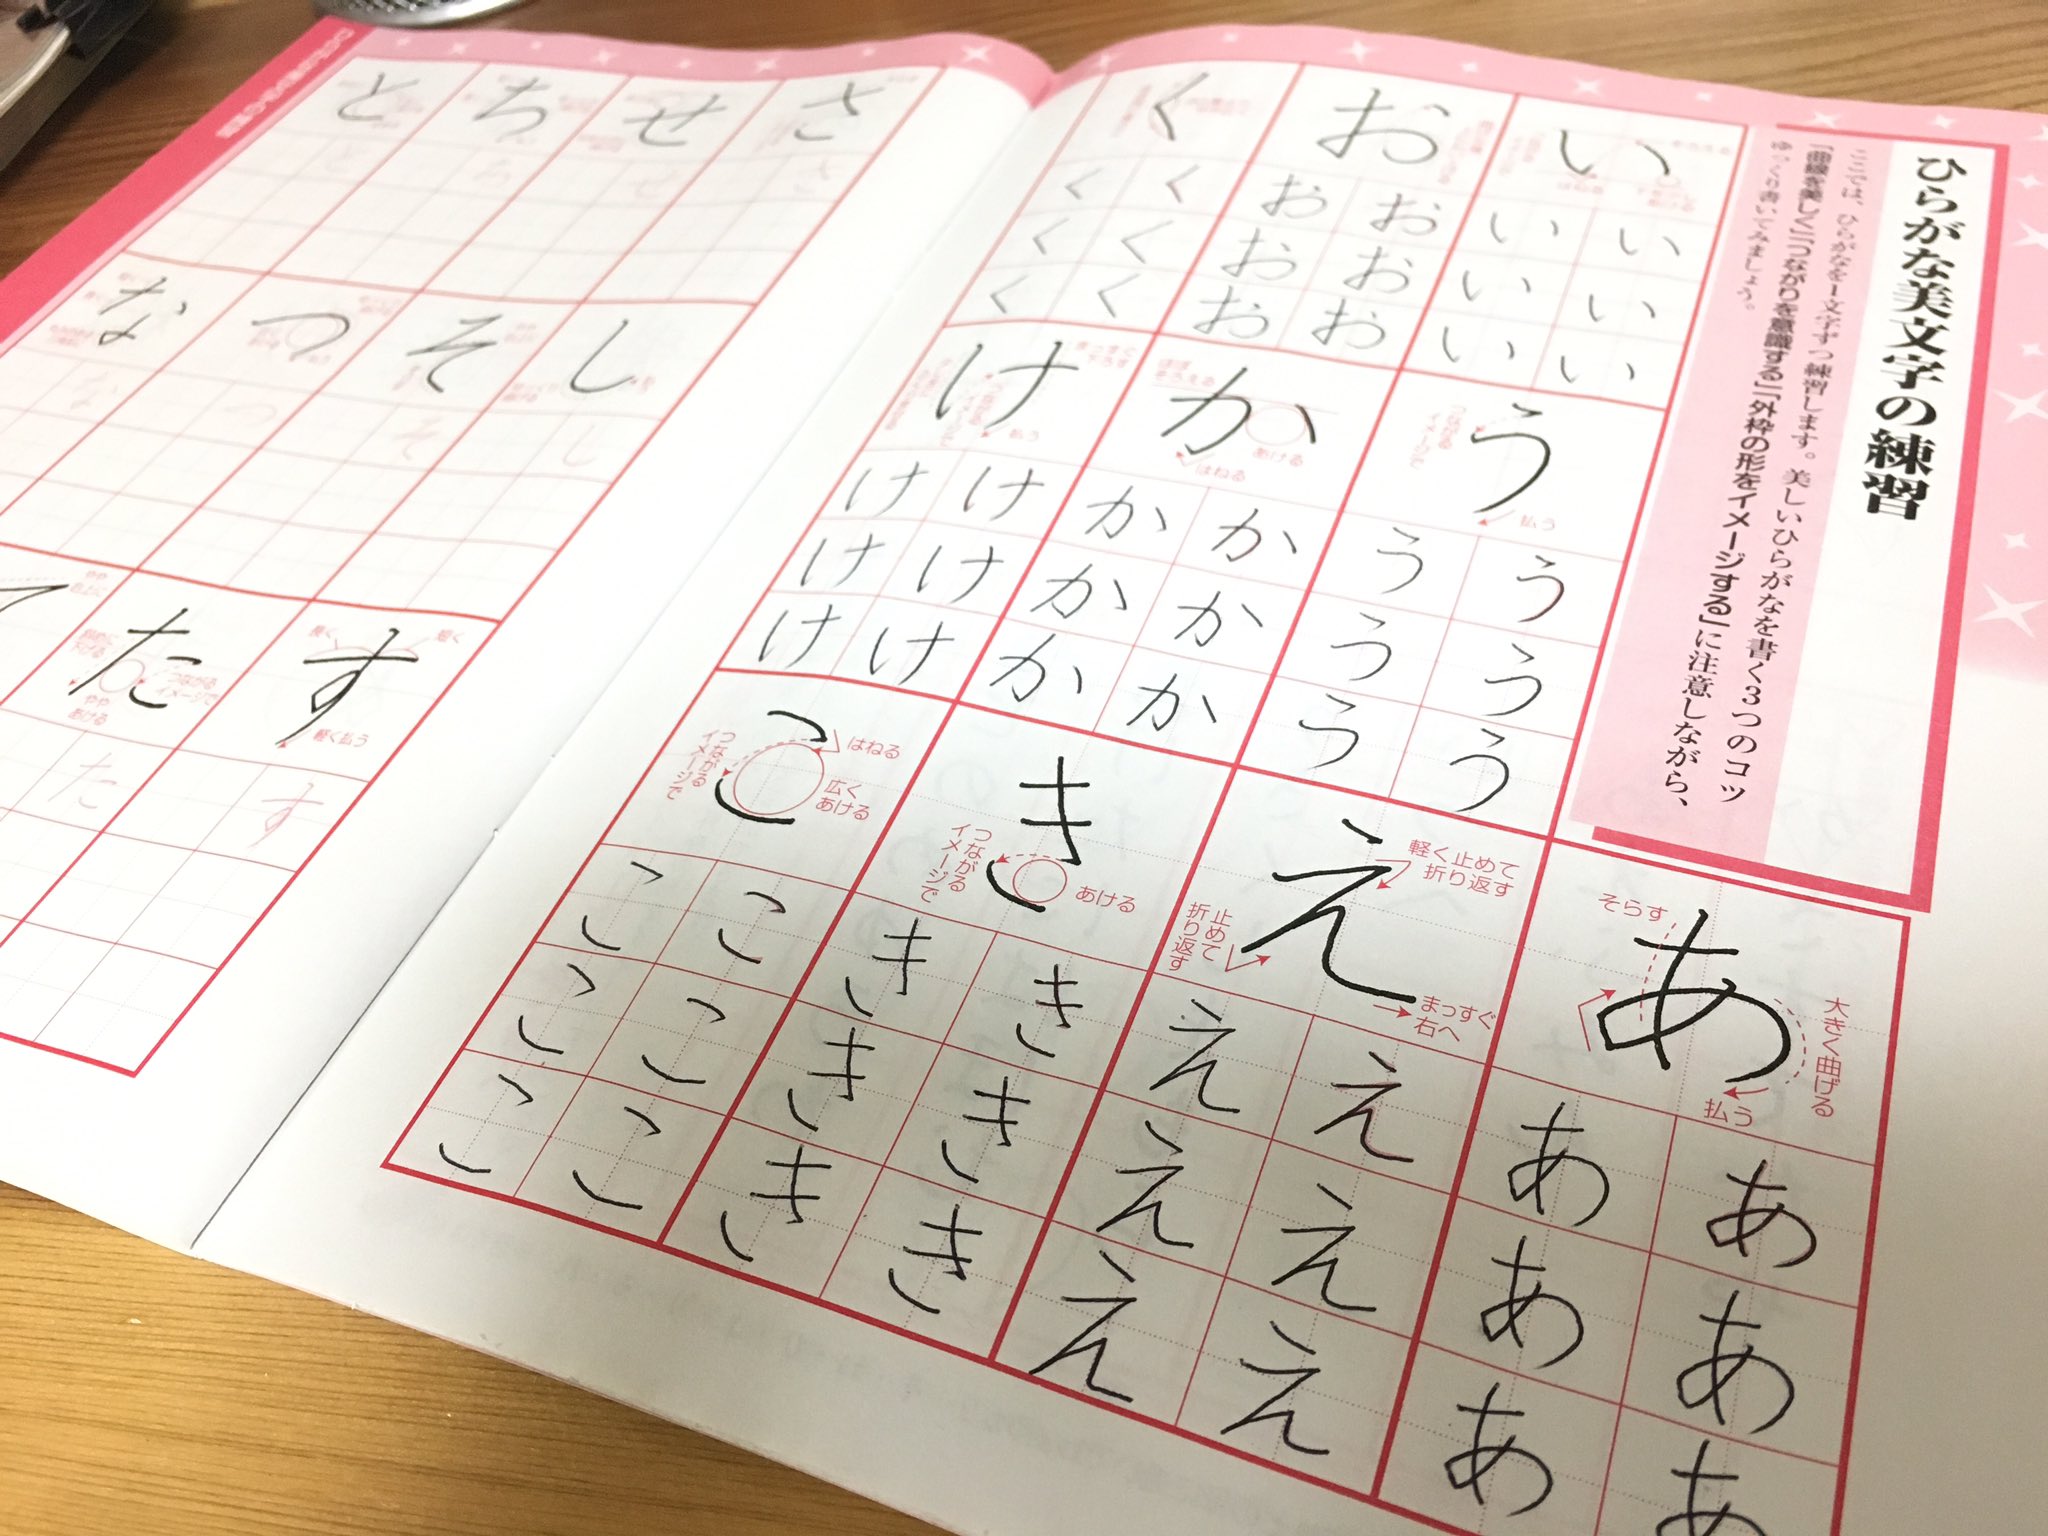 ひらがな美文字の練習
ここでは、ひらがなを1文字ずつ練習します。美しいひらがなを書く3つのコツ
「曲線を美しく」「つながりを意識する」「外枠の形をイメージする」に注意しながら、
ゆっくり書いてみましょう。
あ
そらす
大きく曲げる
払う
あ あ
あ あ
あ あ
い
い い
い い
い い
う
つながるイメージで
払う
う う
う う
う う
え
軽く止めて
折り返す
止めて
折り返す
まっすぐ
右へ
え え
え え
え え
お
お お
お お
お お
か
ほぼ
そろえる
あける
はねる
か か
か か
か か
き
つながる
イメージで
あける
き き
き き
き き
く
く く
く く
く く
け
まっすぐ
下ろす
払う
け け
け け
け け
こ
はねる
つながる
イメージで
広く
あける
こ こ
こ こ
こ こ
さ
さ
し
し
す
長く
短く
軽く払う
す
せ
せ
そ
そ
た
斜めに
下げる
つながる
イメージで
やや
あける
た
ち
ち
つ
つ
て
やや
右上に
と
と
な
な